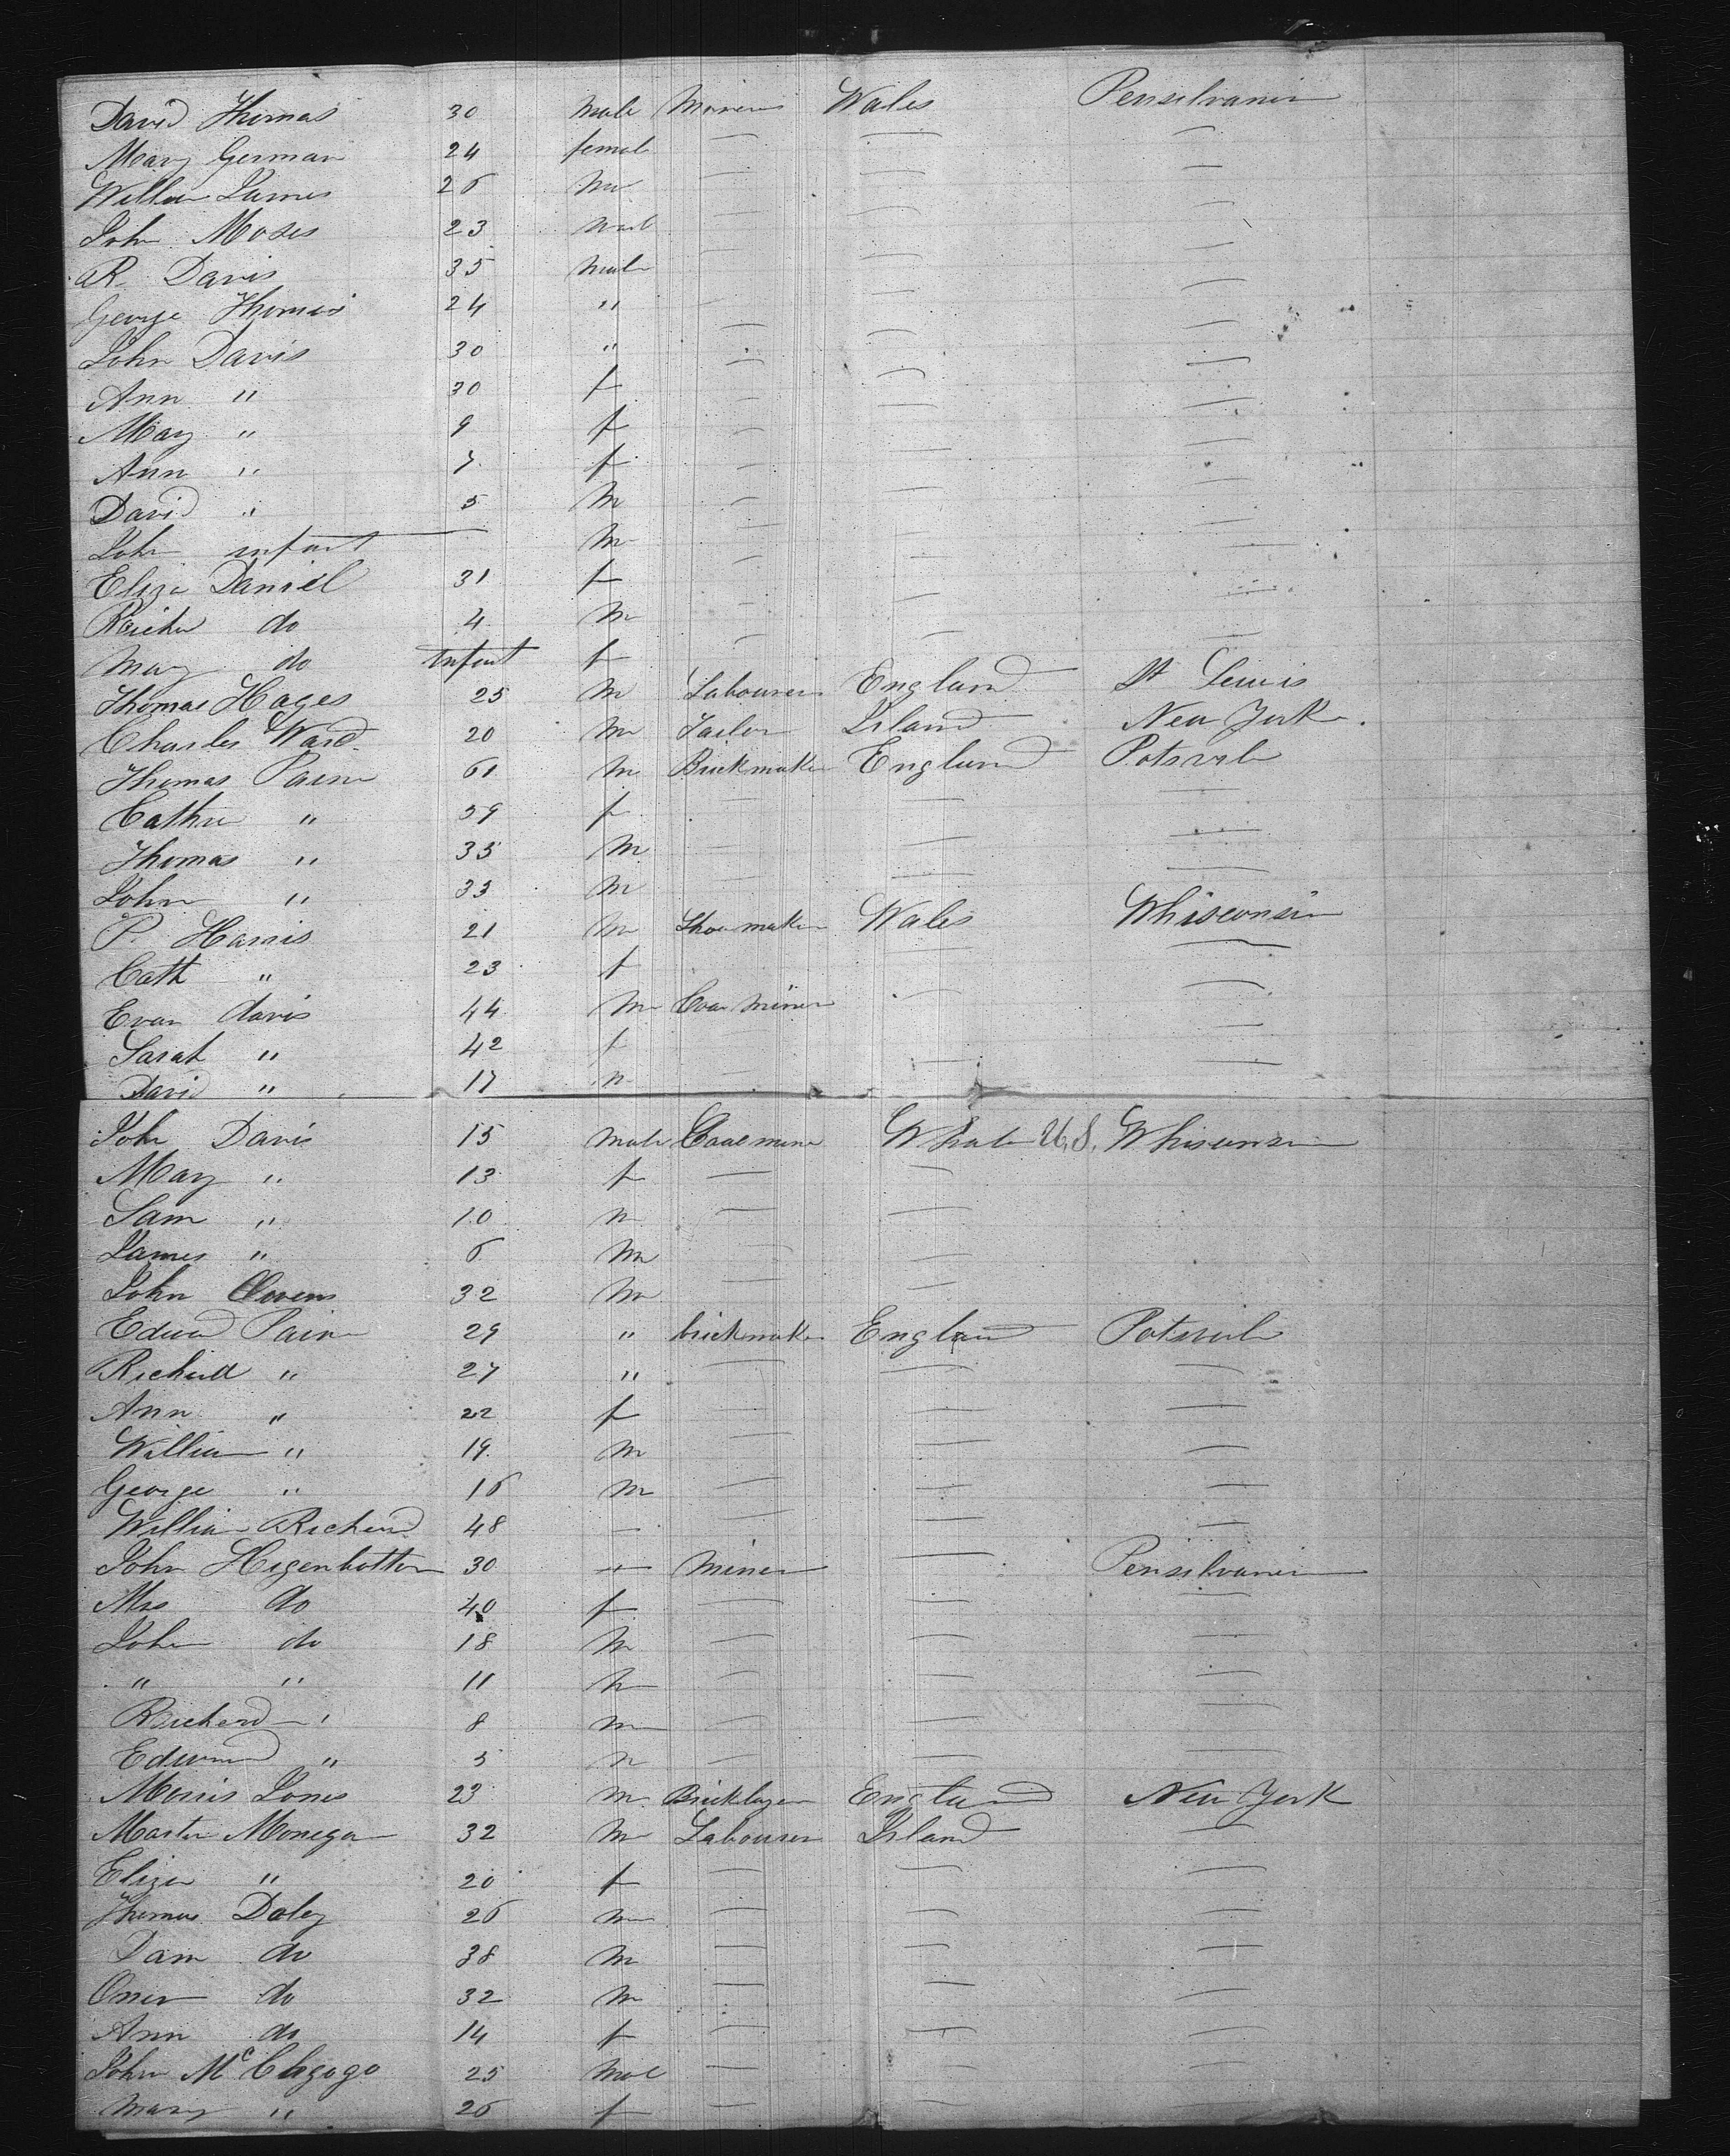 David Thomas 30 Male Miners Wales Pensilvania
Mary German 24 femal — — —
William James 26 M — — —
John Moses 23 Mal — — —
R. Davis 35 Male — — —
George Thomas 24 " — — —
John Davis 30 " — — —
Ann " 30 f — — —
Mary " 9 f — — —
Ann " 7 f — — —
David " 5 M — — —
John infant — M — — —
Eliza Daniel 31 f — — —
Richar do 4 M — — —
Mary do infant f — — —
Thomas Hages 25 M Labourer England St Lewis
Charles Ward 20 M Tailor Irland New York
Thomas Pain 61 M Brickmaker England Potsvile
Cathrn " 59 f — — —
Thomas " 35 M — — —
John " 33 M — — —
P. Harris 21 M Shoemaker Wales Whisconsin
Cath " 23 f — —
Evan davis 44 M Coa miner — —
Sarah " 42 f — — —
David " 17 m — — —
John Davis 15 Male Coal miner Whale U,S, Whisconsin
Mary " 13 f — —
Sam " 10 m — —
James " 6 M — —
John Owens 32 M — —
Edward Pain 29 " brickmaker England Potsvile
Richard " 27 " — — —
Ann " 22 f — — —
William " 19 M — — —
George " 16 M — — —
William Richard 48 — — — —
John Higenbottom 30 " Miner — Pensilvania
Mrs do 40 f — — —
John do 18 M — — —
" " 11 M — — —
Richard " 8 m — — —
Edward " 5 m — — —
Morris Jones 23 M Bricklayer England New York
Martin Monegan 32 M Labourer Irland —
Eliza " 20 f — — —
Thomas Daley 26 m — — —
Dam do 38 M — — —
do 32 M — — —
Ann do 14 f — — —
John Mc 25 Mal — — —
Mary " 26 f — — —